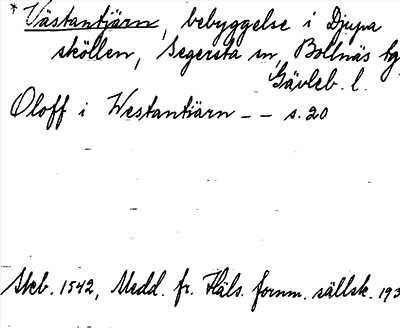 * Västantjärn, bebyggelse i Djupa
sköllen, Segersta sn, Bollnäs tg
Gävleb. l.
Oloff i Westantiärn -- s. 20
Skb. 1542, Medd. fr. Häls. fornm. sällsk. 193